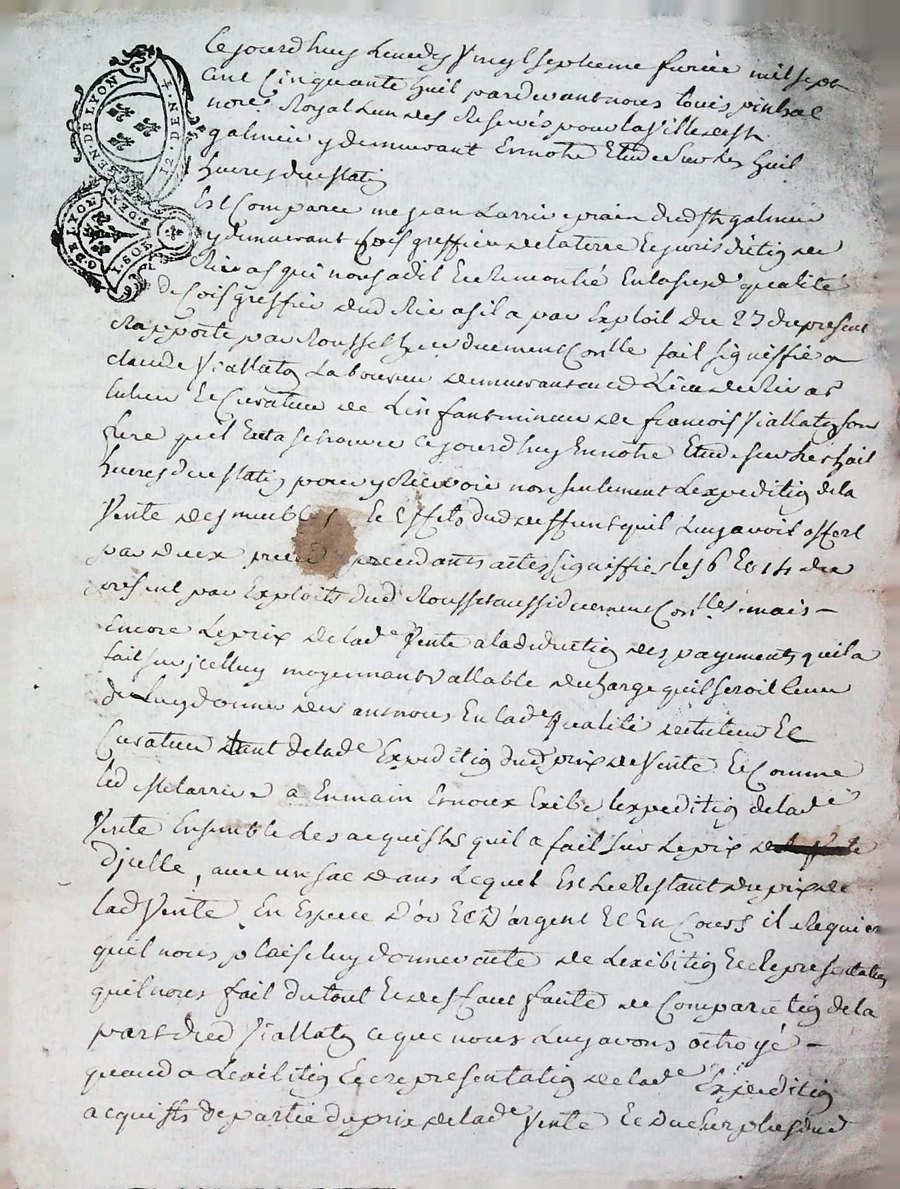 GEN. DE LYON
12. DEN
G. DE LYON
1. SOL
8. DEN
Ce jourdhuy Lundy Vingt septieme fevrié mil sept
cent Cinquante huit pardevant nous Louis pinhac
nore Royal Lun des Reservés pour la Ville de St
galmier y demeurant En notre Etude Sur les huit
heures du matin
Est Comparu me jean Larrive prain dud St galmier
y demeurant Cois greffier de la terre Et jurisdiction de
Rivas qui nous a dit Et Remontré En lasusd qualité
de Cois greffier dud Rivas il a par Exploit du 23 du present
Rapporté par Rousset huer duement Conlle fait signiffié a
claude Viallaton Laboureur demeurant aud Lieu de Rivas
tuteur Et Curateur de Linfant mineur de francois Viallaton son
frere quil Eut a se trouver ce jourdhuy En notre Etude sur les huit
heures du matin pour y Recevoir non seulement Lexpedition de la
Vente des meubles Et Effets dud deffunt quil Luy avoit offert
par deux precedants actes signiffies les 6 Et 14 du
present par Exploits dud Rousset aussi duement Conlles mais
Encore Le prix de lade Vente a la deduction des payements quil a
fait sur jcelluy moyennant Vallable decharge quil seroit tenu
de Luy donner devant nous En lade qualité de tuteur Et
Curateur tant de lade Expedition du prix de Vente Et Comme
led Me larrive a En main Ernoux Exibe lexpedition de lade
Vente Ensemble les acquists quil a fait sur Le prix
Djcelle, avec un sac dans Lequel Est Le Restant du prix de
lad Vente En Espece D'or Et D'argent Et En Cours il Requiert
quil nous plaise luy donner acte de Lexibition Et Representation
quil nous fait du tout Et deffaut faute de Comparution de la
part dud Viallaton ce que nous Luy avons octroyé
quand a Lexibition Et representation de lade Expedition
acquists de partie du prix de lade Vente Et du surplus dud